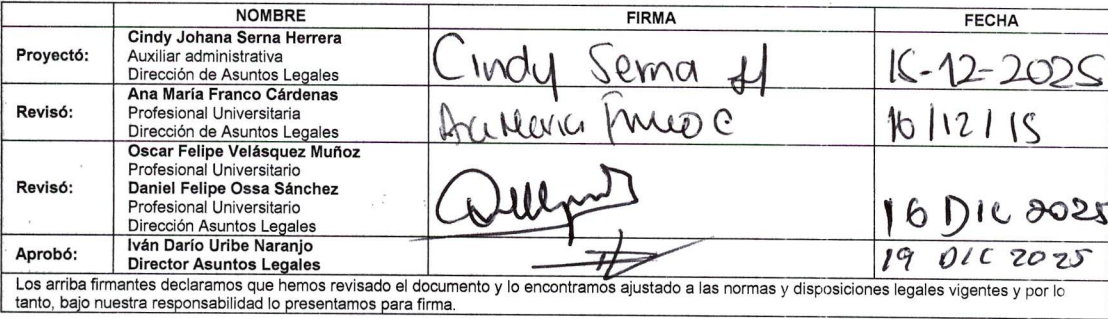 NOMBRE FIRMA FECHA
Proyectó: Cindy Johana Serna Herrera
Auxiliar administrativa
Dirección de Asuntos Legales
Cindy Serna H 15-12-2025
Revisó: Ana María Franco Cárdenas
Profesional Universitaria
Dirección de Asuntos Legales
Ana Maria Franco C 16/12/15
Revisó: Oscar Felipe Velásquez Muñoz
Profesional Universitario
Daniel Felipe Ossa Sánchez
Profesional Universitario
Dirección Asuntos Legales
16 DIC 2025
Aprobó: Iván Darío Uribe Naranjo
Director Asuntos Legales
19 DIC 2025
Los arriba firmantes declaramos que hemos revisado el documento y lo encontramos ajustado a las normas y disposiciones legales vigentes y por lo
tanto, bajo nuestra responsabilidad lo presentamos para firma.